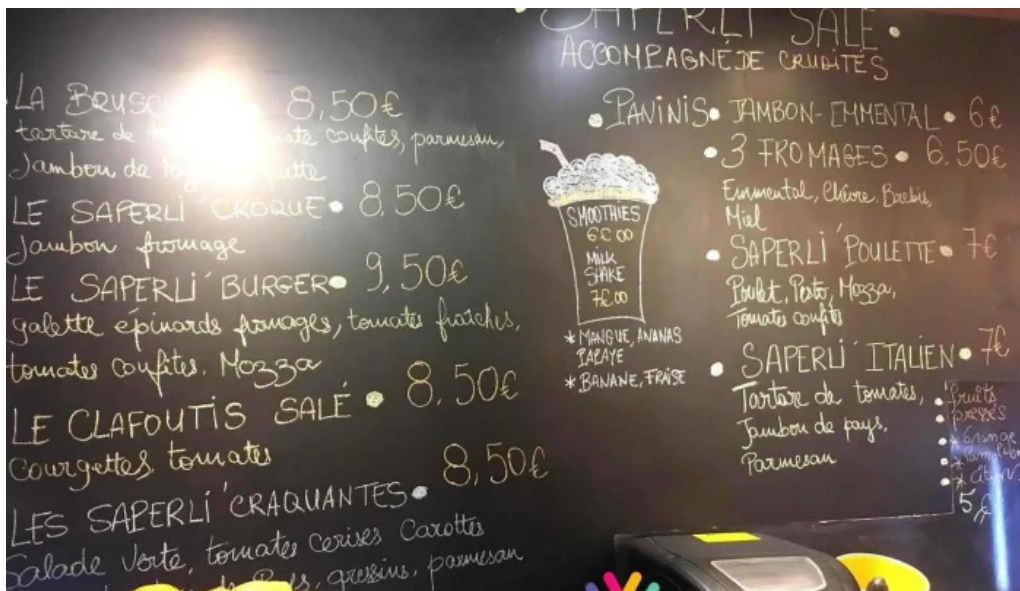 SAPERLI SALÉ •
ACCOMPAGNÉ DE CRUDITÉS
LA 8,50€
tartare de confites, parmesan,
Jambon de
LE SAPERLI'CROQUE • 8.50€
Jambon fromage
LE SAPERLI'BURGER • 9,50€
galette épinards fromages, tomates fraîches,
tomates confites. Mozza
LE CLAFOUTIS SALÉ • 8.50€
Courgettes, tomates
LES SAPERLI'CRAQUANTES • 8,50€
Salade verte, tomates cerises Carottes
gressins, parmesan
SMOOTHIES
6€00
MILK
SHAKE
7€00
* MANGUE, ANANAS
PAPAYE
* BANANE, FRAISE
• PANINIS • JAMBON-EMMENTAL • 6€
• 3 FROMAGES • 6.50€
Emmental, Chèvre. Brebis,
Miel
• SAPERLI'POULETTE • 7€
Poulet, Pesto, Mozza,
Tomates confites
• SAPERLI'ITALIEN • 7€
Tartare de tomates,
Jambon de pays,
Parmesan
fruits
pressés
5€